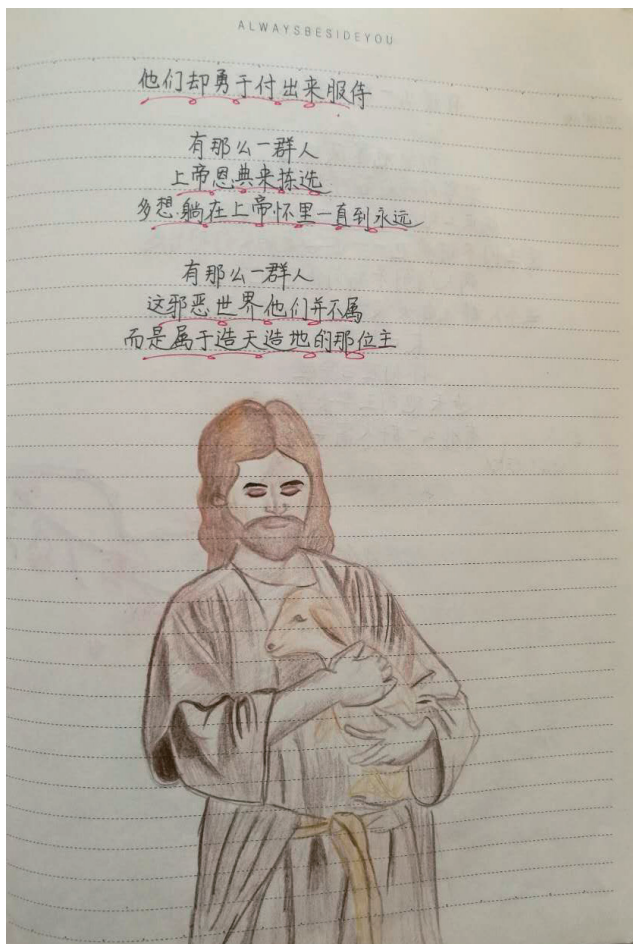 ALWAYSBESIDEYOU
他们却勇于付出来服侍
有那么一群人
上帝恩典来拣选
多想躺在上帝怀里一直到永远
有那么一群人
这邪恶世界他们并不属
而是属于造天造地的那位主